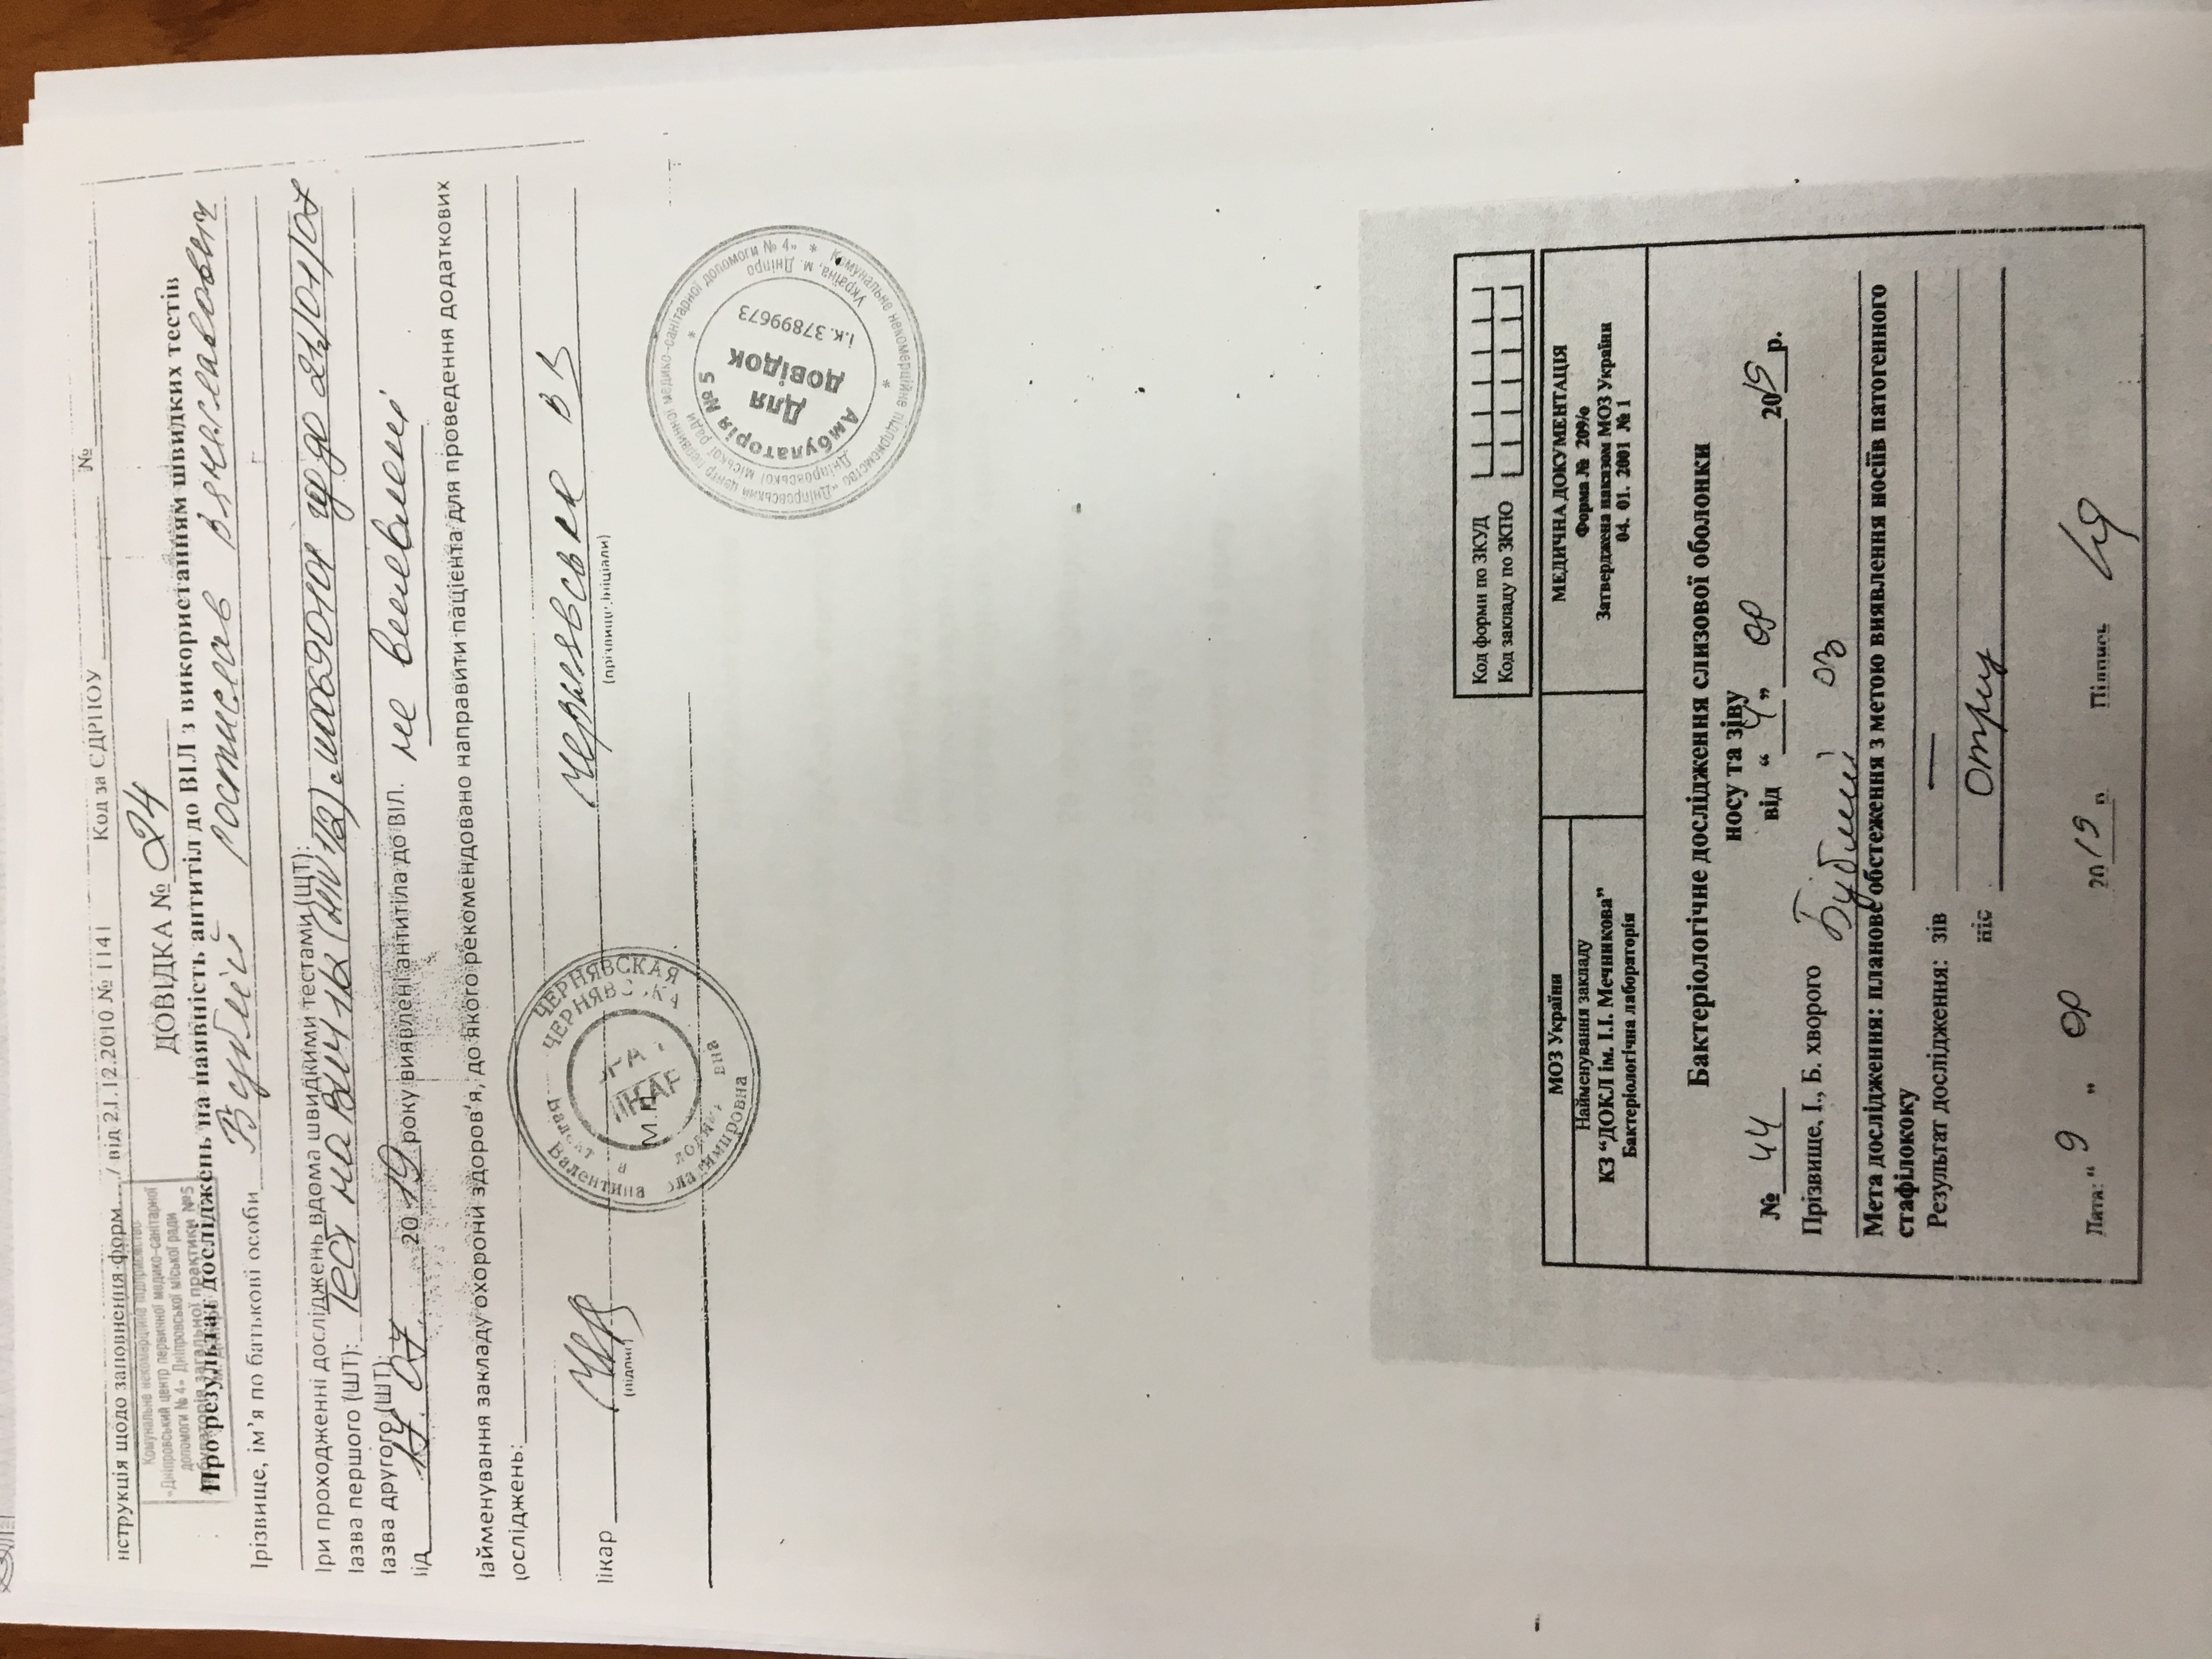 нструкція щодо заповнення форм..../ від 21.12.2010 № 1141 Код за ЄДРПОУ №
Комунальне некомерційне підприємство
«Дніпровський центр первинної медико-санітарної
допомоги № 4» Дніпровської міської ради
Амбулаторія загальної практики №5
м. Дніпро
ДОВІДКА № 24
Про результат досліджень на наявність антитіл до ВІЛ з використанням швидких тестів
Ірізвище, ім'я по батькові особи Бублій Ростислав Вячеславович
Іри проходженні досліджень вдома швидкими тестами (ШТ):
Іазва першого (ШТ): Тест на ВИЧ 1/2 (HIV 1/2) до 21/01/07
Іазва другого (ШТ):
Від 17. 07. 2019 року виявлені антитіла до ВІЛ. не виявлені
Іайменування закладу охорони здоров'я, до якого рекомендовано направити пацієнта для проведення додаткових
досліджень:
Лікар Чернявська В В
(підпис) (прізвище,ініціали)
М.П.
ЧЕРНЯВСКАЯ Валентина Владимировна
ЧЕРНЯВСЬКА
ЛІКАР
Комунальне некомерційне підприємство "Дніпровський центр первинної медико-санітарної допомоги № 4"
Дніпровської міської ради
Україна, м. Дніпро
Амбулаторія № 5
Для
довідок
і.к. 37899673
Код форми по ЗКУД
Код закладу по ЗКПО
МОЗ України
Найменування закладу
КЗ “ДОКЛ ім. І.І. Мечникова”
Бактеріологічна лабораторія
МЕДИЧНА ДОКУМЕНТАЦІЯ
Форма № 209/о
Затверджена наказом МОЗ України
04. 01. 2001 № 1
Бактеріологічне дослідження слизової оболонки
носу та зіву
№ 44 від “4” 09 2019 р.
Прізвище, І., Б. хворого Бублий
Мета дослідження: планове обстеження з метою виявлення носіїв патогенного
стафілококу
Результат дослідження: зів —
ніс отриц
Дата: “ 9 ” 09 2019 р Підпись